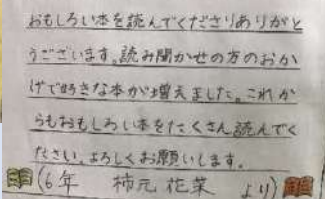 おもしろい本を読んでくださりありがと
うございます。読み聞かせの方のおか
げで好きな本が増えました。これか
らもおもしろい本をたくさん読んでく
ださい。よろしくお願いします。
(6年 柿元 花菜 より)